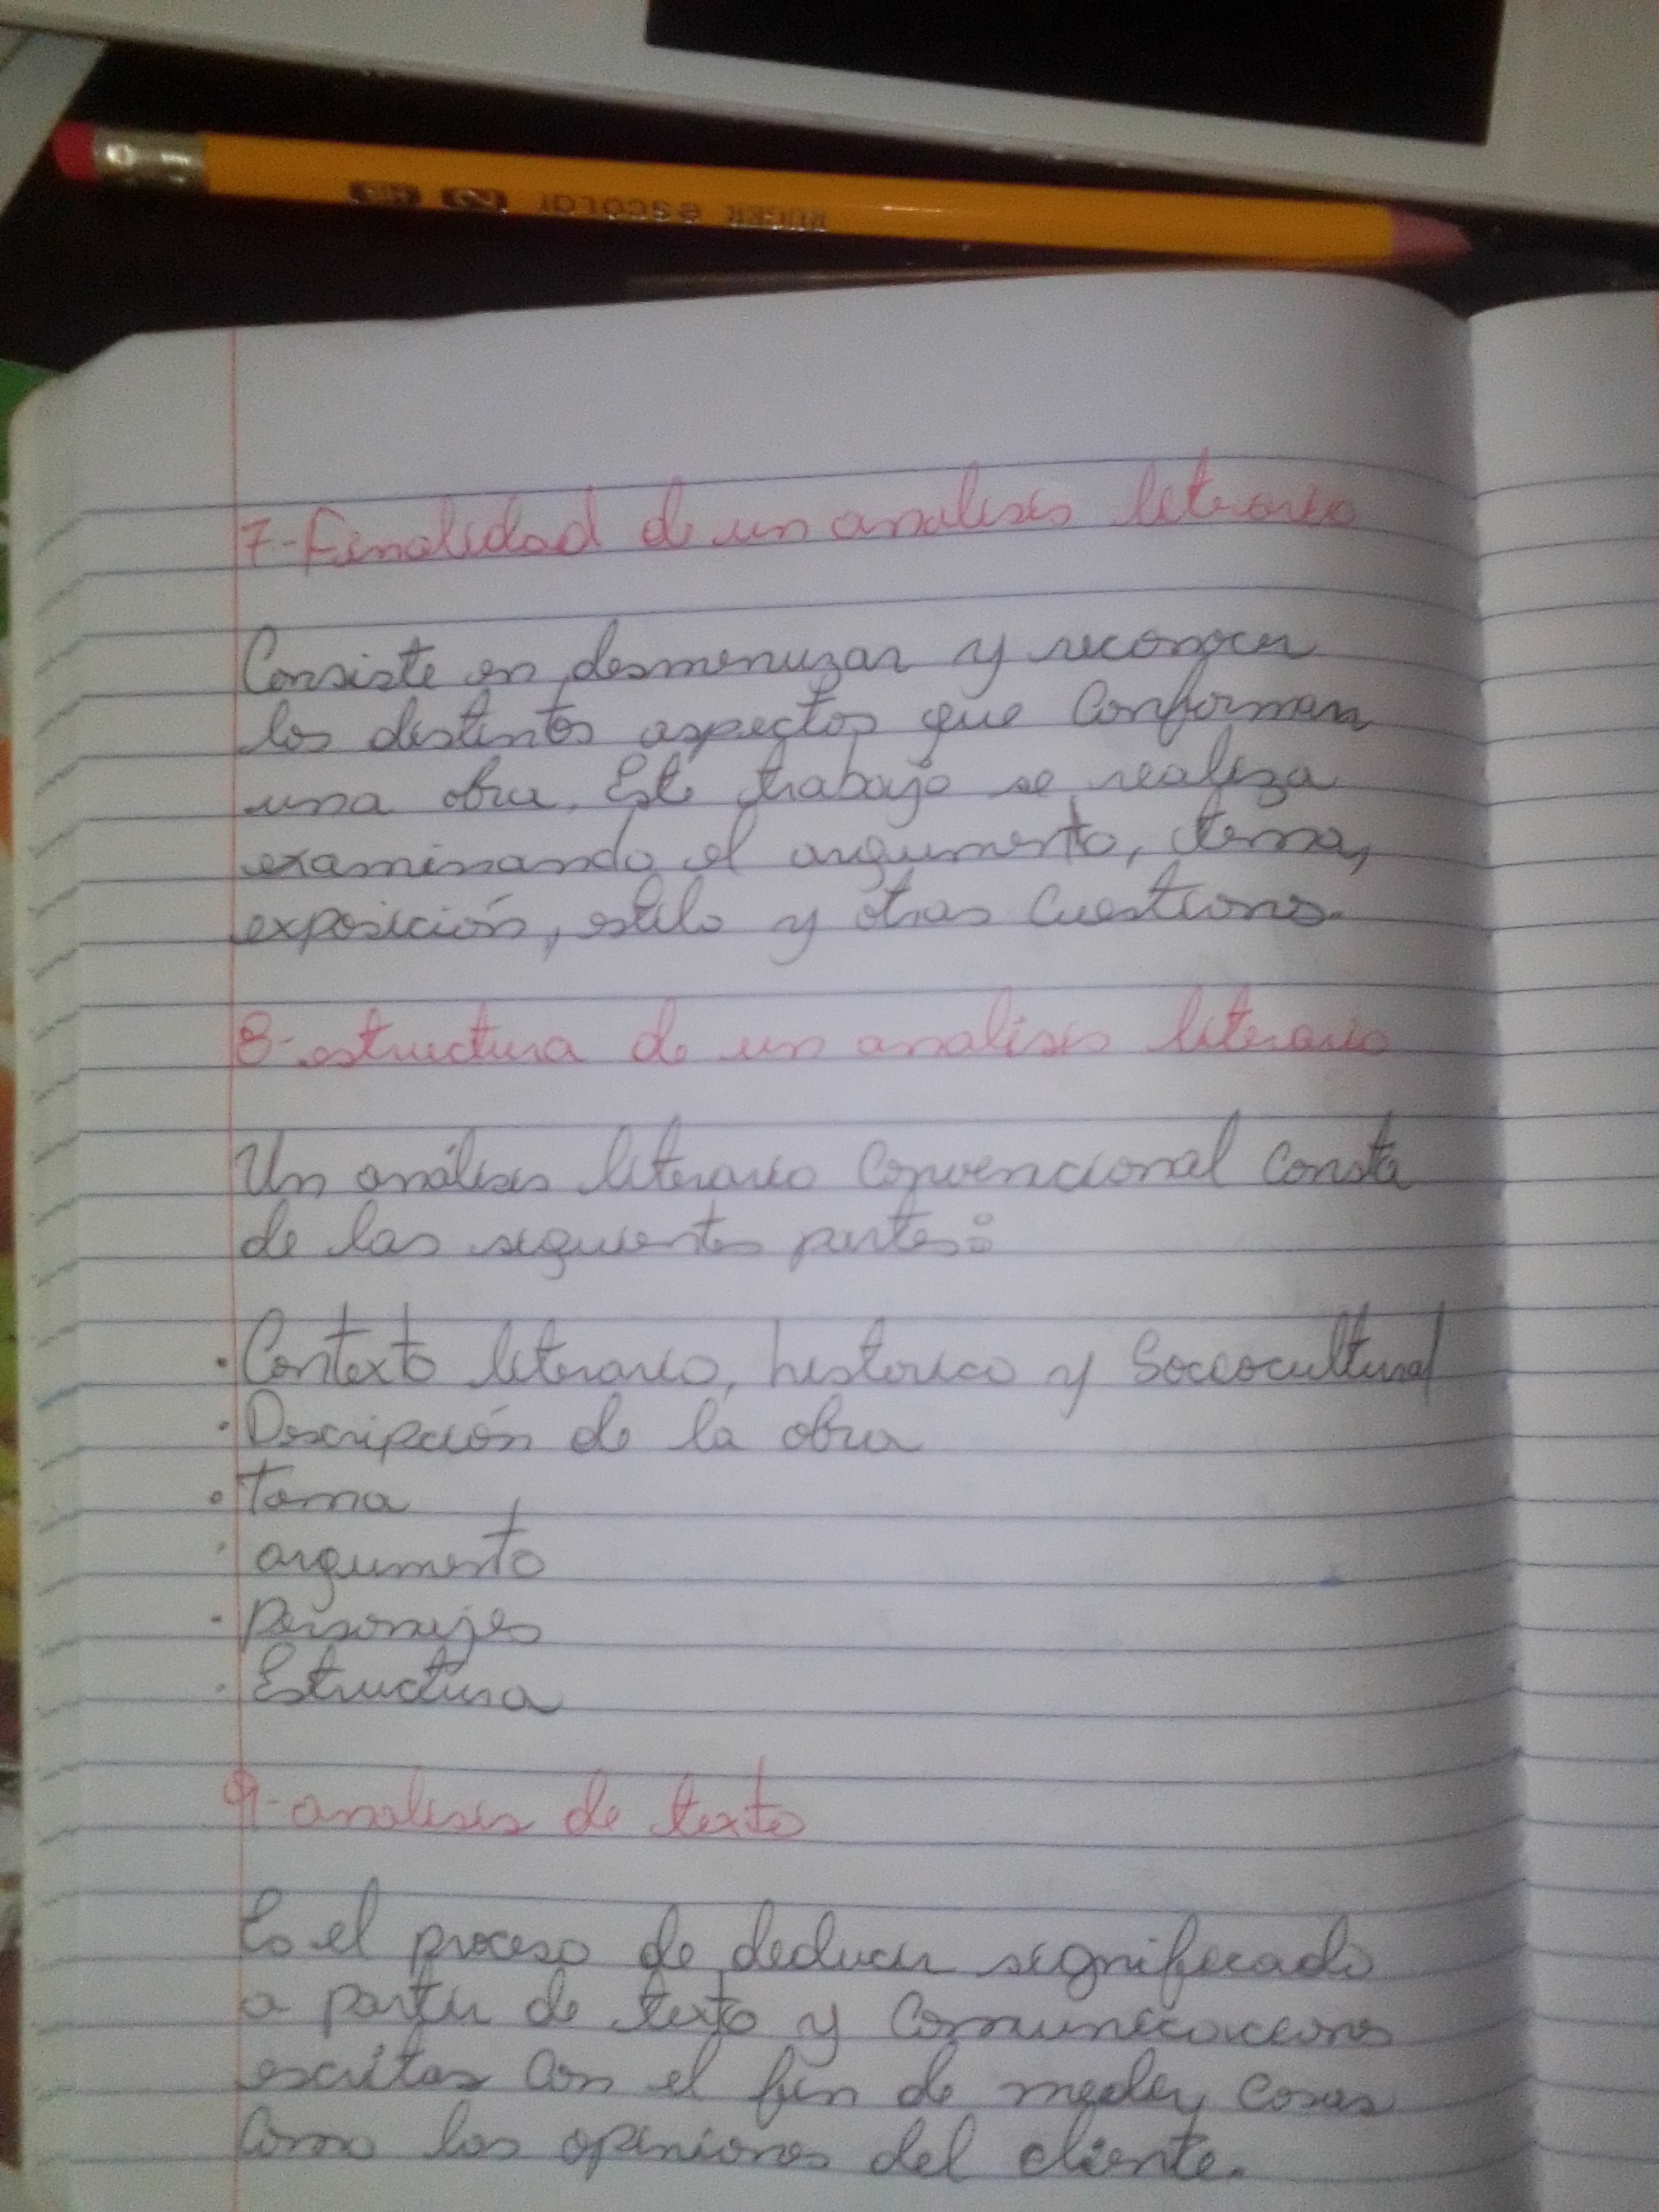 KRUGER escolar HB 2
7-Finalidad de un analisis literario
Consiste en desmenuzar y reconocer
los distintos aspectos que Conforman
una obra. Este trabajo se realiza
examinando el argumento, tema,
exposición, estilo y otras Cuestiones.
8-estructura de un analisis literario
Un análisis literario Convencional Consta
de las siguientes partes:
· Contexto literario, historico y Sociocultural
· Descripción de la obra
· Tema
· argumento
· Personajes
· Estructura
9-analisis de texto
Es el proceso de deducir significado
a partir de texto y Comunicaciones
escritas Con el fin de medir Cosas
Como las opiniones del cliente.